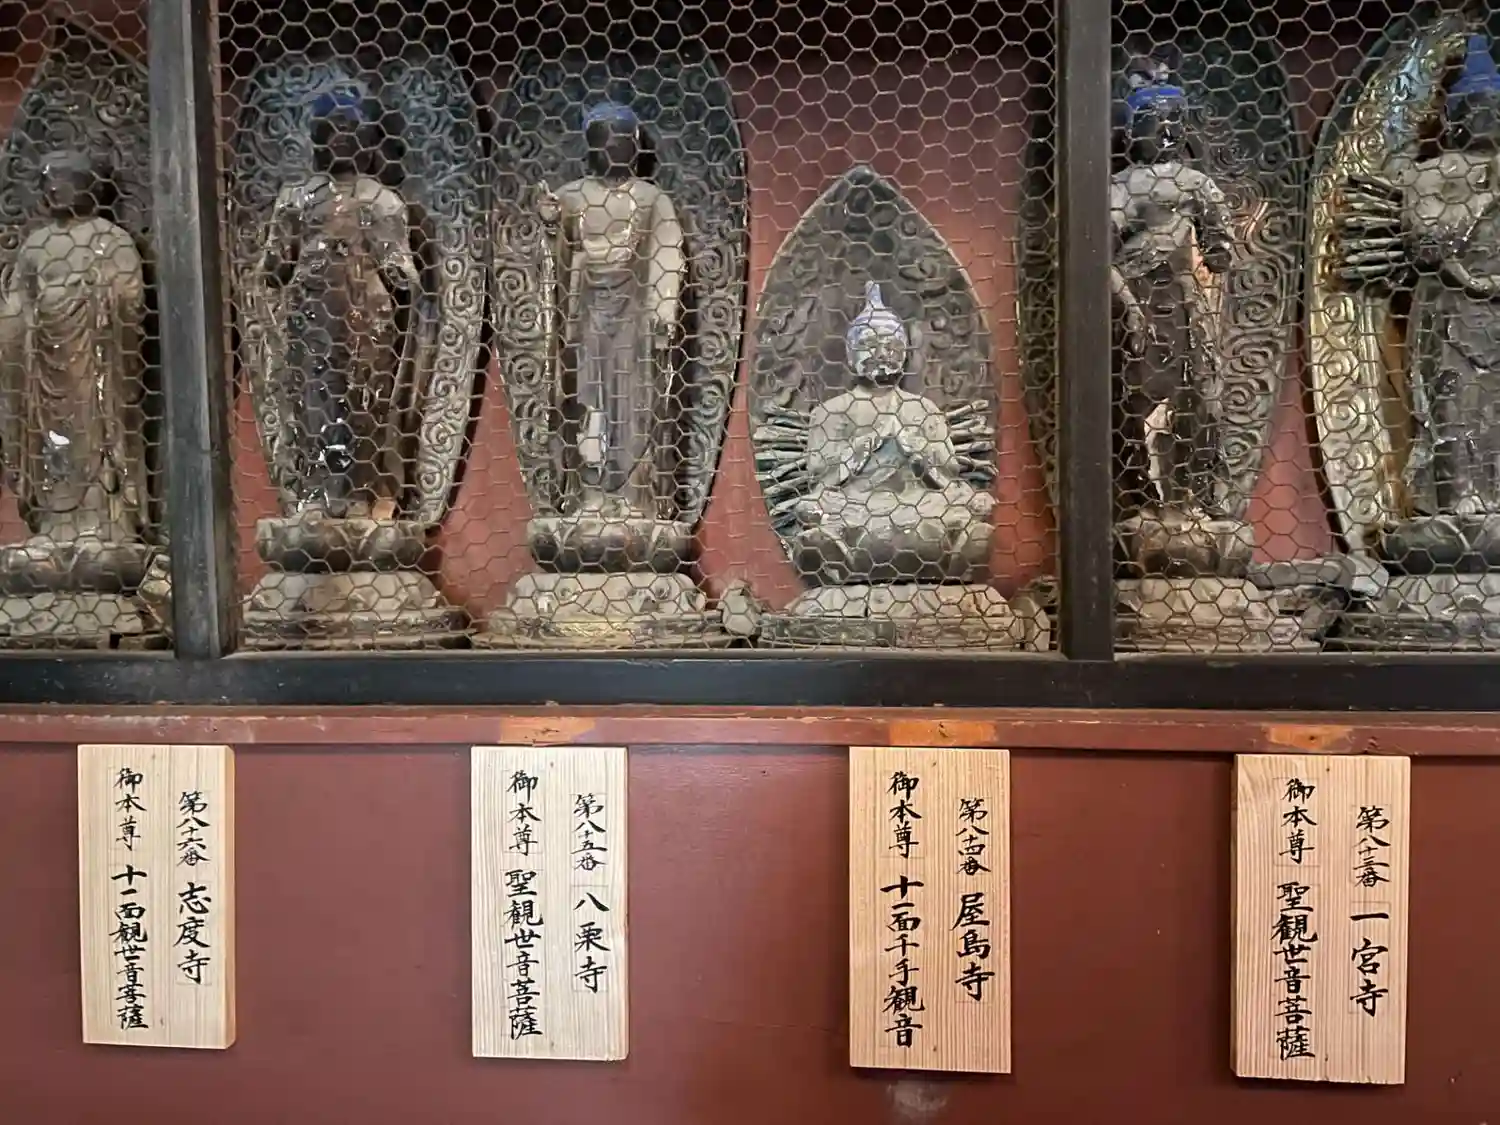 第八十六番 志度寺
御本尊 十一面観世音菩薩
第八十五番 八栗寺
御本尊 聖観世音菩薩
第八十四番 屋島寺
御本尊 十一面千手観音
第八十三番 一宮寺
御本尊 聖観世音菩薩